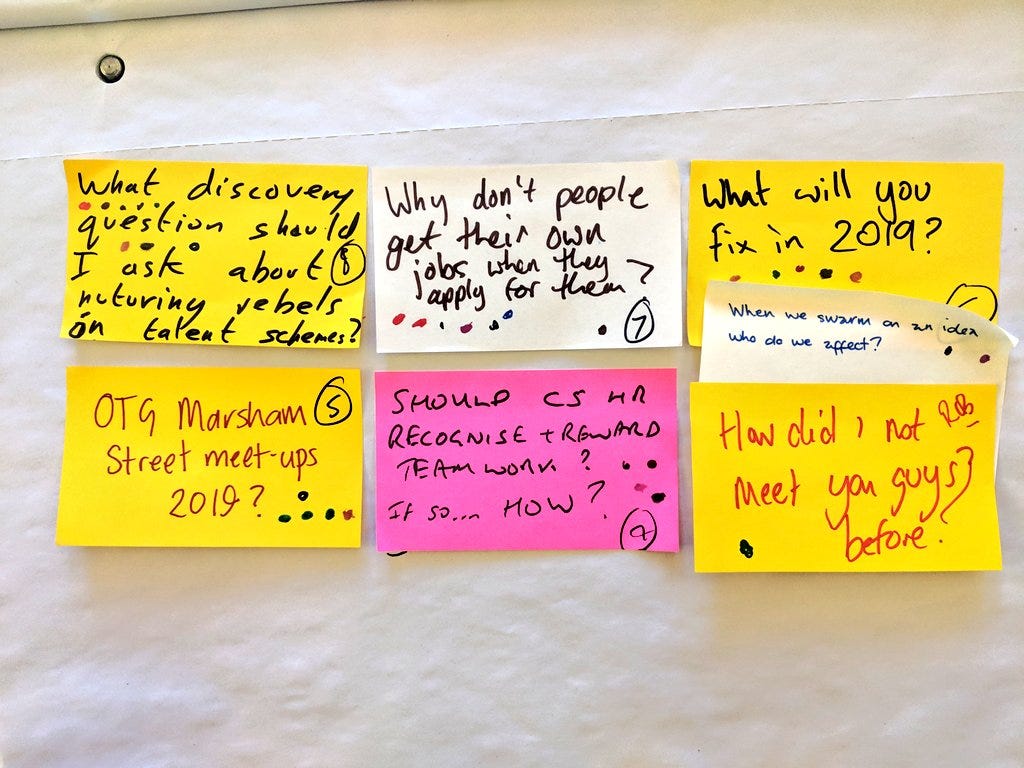 What discovery
question should
I ask about 8
nuturing rebels
on talent schemes?
Why don't people
get their own
jobs when they
apply for them?
7
What will you
fix in 2019?
When we swarm on an idea
who do we affect?
OTG Marsham 5
Street meet-ups
2019?
SHOULD CS HR
RECOGNISE + REWARD
TEAMWORK?
IF SO... HOW?
4
How did I not Rob
meet you guys
before?